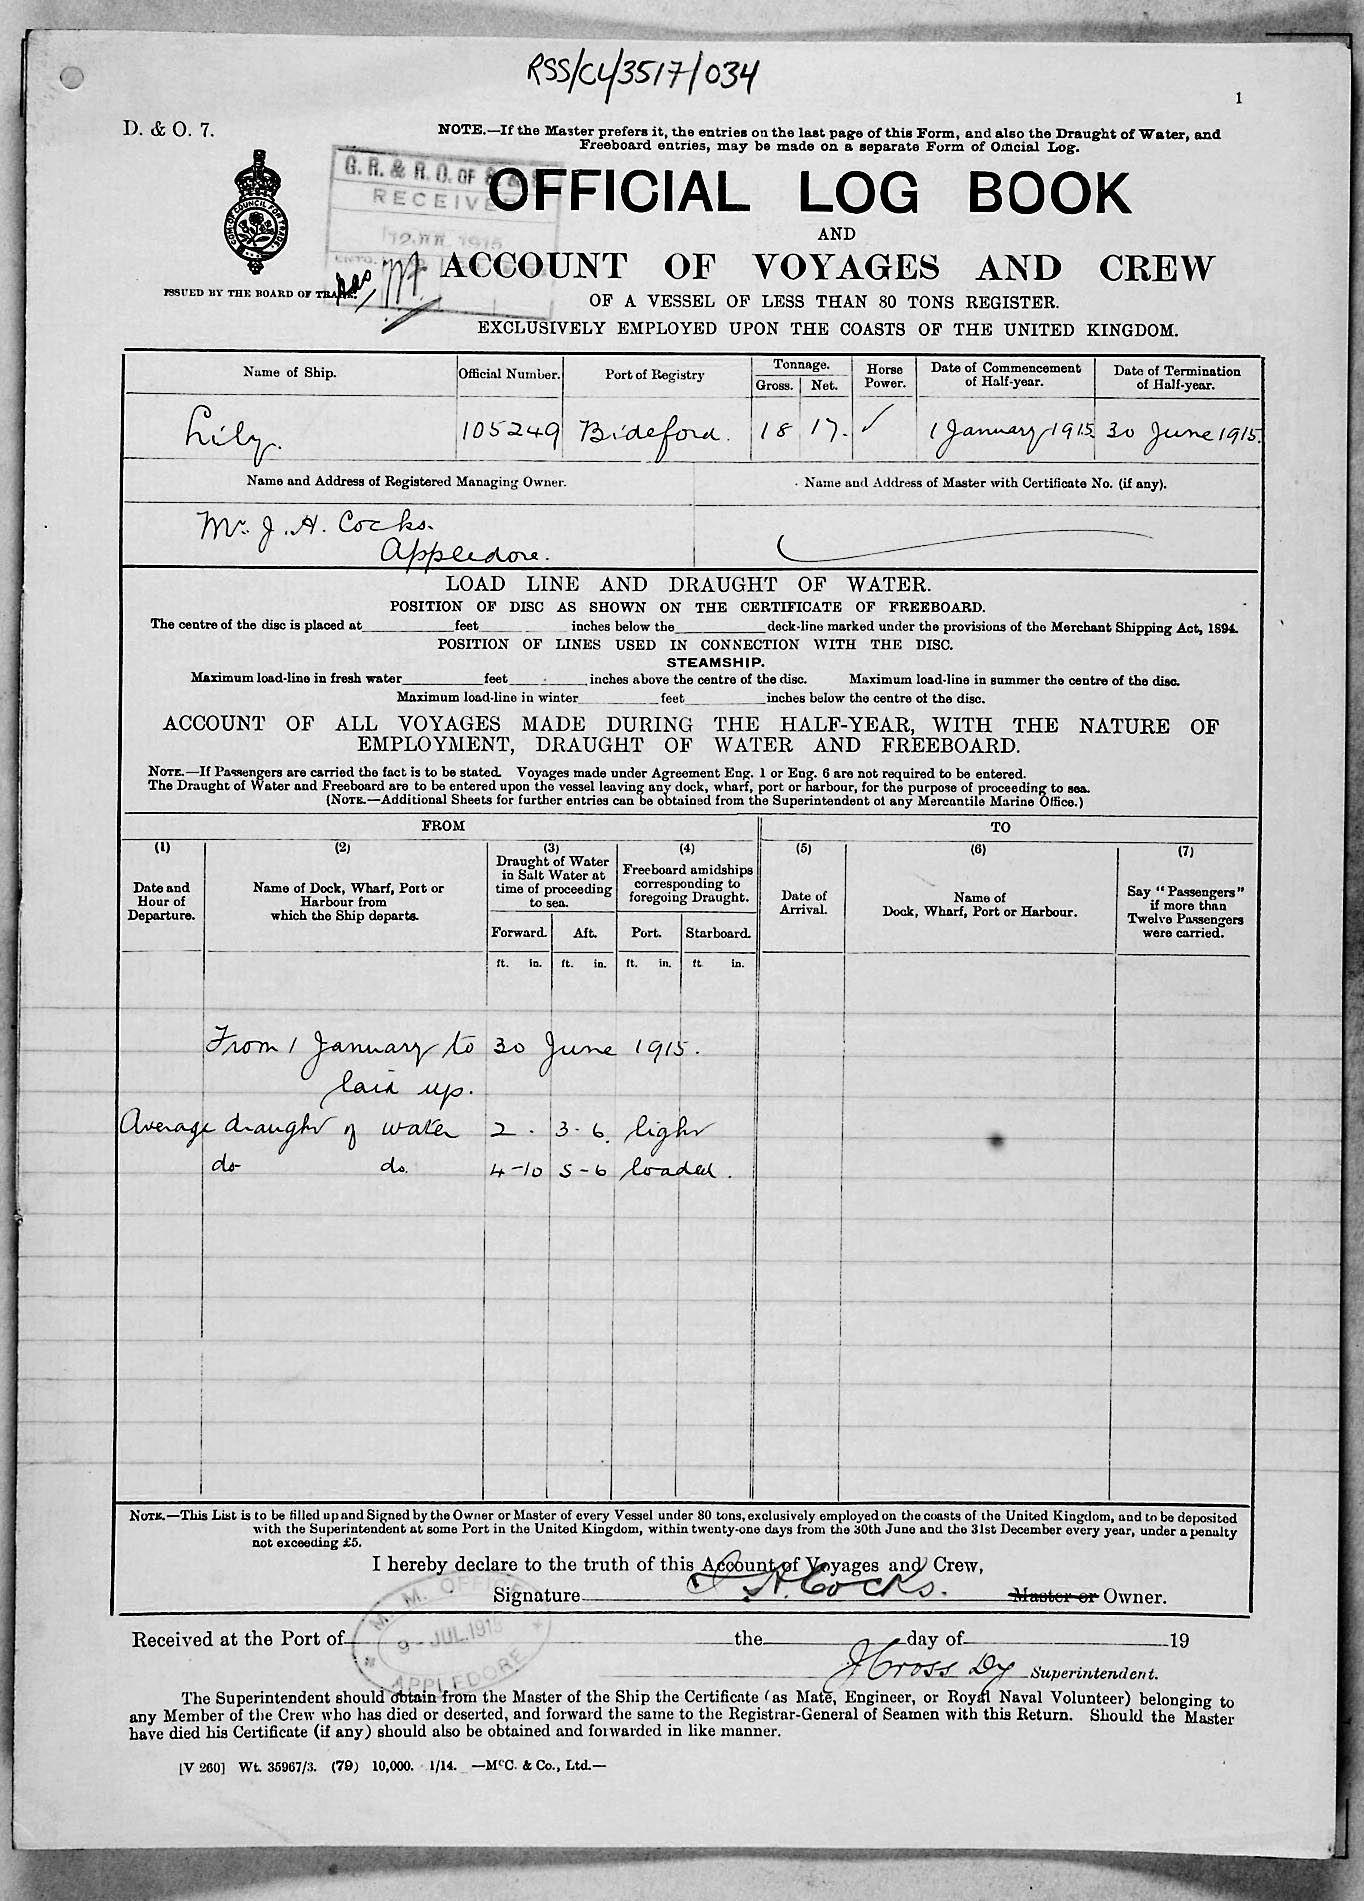 RSS/CL/3517/034
1
D. & O. 7.
NOTE.—If the Master prefers it, the entries on the last page of this Form, and also the Draught of Water, and
Freeboard entries, may be made on a separate Form of Official Log.
G. R. & R. O. OF S & S
RECEIVED
1915
OFFICIAL LOG BOOK
AND
ACCOUNT OF VOYAGES AND CREW
COM. OF COUNCIL FOR TRADE
ISSUED BY THE BOARD OF TRADE.
OF A VESSEL OF LESS THAN 80 TONS REGISTER.
EXCLUSIVELY EMPLOYED UPON THE COASTS OF THE UNITED KINGDOM.
Name of Ship. Official Number. Port of Registry Tonnage. Horse Power. Date of Commencement of Half-year. Date of Termination of Half-year.
Gross. Net.
Lily. 105249 Bideford. 18 17. ✓ 1 January 1915. 30 June 1915.
Name and Address of Registered Managing Owner. Name and Address of Master with Certificate No. (if any).
Mr. J. H. Cocks.
Appledore.
LOAD LINE AND DRAUGHT OF WATER.
POSITION OF DISC AS SHOWN ON THE CERTIFICATE OF FREEBOARD.
The centre of the disc is placed at feet inches below the deck-line marked under the provisions of the Merchant Shipping Act, 1894.
POSITION OF LINES USED IN CONNECTION WITH THE DISC.
STEAMSHIP.
Maximum load-line in fresh water feet inches above the centre of the disc. Maximum load-line in summer the centre of the disc.
Maximum load-line in winter feet inches below the centre of the disc.
ACCOUNT OF ALL VOYAGES MADE DURING THE HALF-YEAR, WITH THE NATURE OF
EMPLOYMENT, DRAUGHT OF WATER AND FREEBOARD.
NOTE.—If Passengers are carried the fact is to be stated. Voyages made under Agreement Eng. 1 or Eng. 6 are not required to be entered.
The Draught of Water and Freeboard are to be entered upon the vessel leaving any dock, wharf, port or harbour, for the purpose of proceeding to sea.
(NOTE.—Additional Sheets for further entries can be obtained from the Superintendent of any Mercantile Marine Office.)
FROM TO
(1) (2) (3) (4) (5) (6) (7)
Date and Hour of Departure.
Name of Dock, Wharf, Port or Harbour from which the Ship departs.
Draught of Water in Salt Water at time of proceeding to sea.
Freeboard amidships corresponding to foregoing Draught.
Date of Arrival.
Name of Dock, Wharf, Port or Harbour.
Say "Passengers" if more than Twelve Passengers were carried.
Forward. Aft. Port. Starboard.
ft. in. ft. in. ft. in. ft. in.
From 1 January to 30 June 1915.
laid up.
Average draught of water 2 . 3 . 6. light
do do. 4-10 5-6 loaded.
NOTE.—This List is to be filled up and Signed by the Owner or Master of every Vessel under 80 tons, exclusively employed on the coasts of the United Kingdom, and to be deposited
with the Superintendent at some Port in the United Kingdom, within twenty-one days from the 30th June and the 31st December every year, under a penalty
not exceeding £5.
I hereby declare to the truth of this Account of Voyages and Crew,
Signature J. H. Cocks. Master or Owner.
M. M. OFFICE
9 - JUL.1915
APPLEDORE
Received at the Port of the day of 19
J Cross Dy Superintendent.
The Superintendent should obtain from the Master of the Ship the Certificate (as Mate, Engineer, or Royal Naval Volunteer) belonging to
any Member of the Crew who has died or deserted, and forward the same to the Registrar-General of Seamen with this Return. Should the Master
have died his Certificate (if any) should also be obtained and forwarded in like manner.
[V 260] Wt. 35967/3. (79) 10,000. 1/14. —McC. & Co., Ltd.—